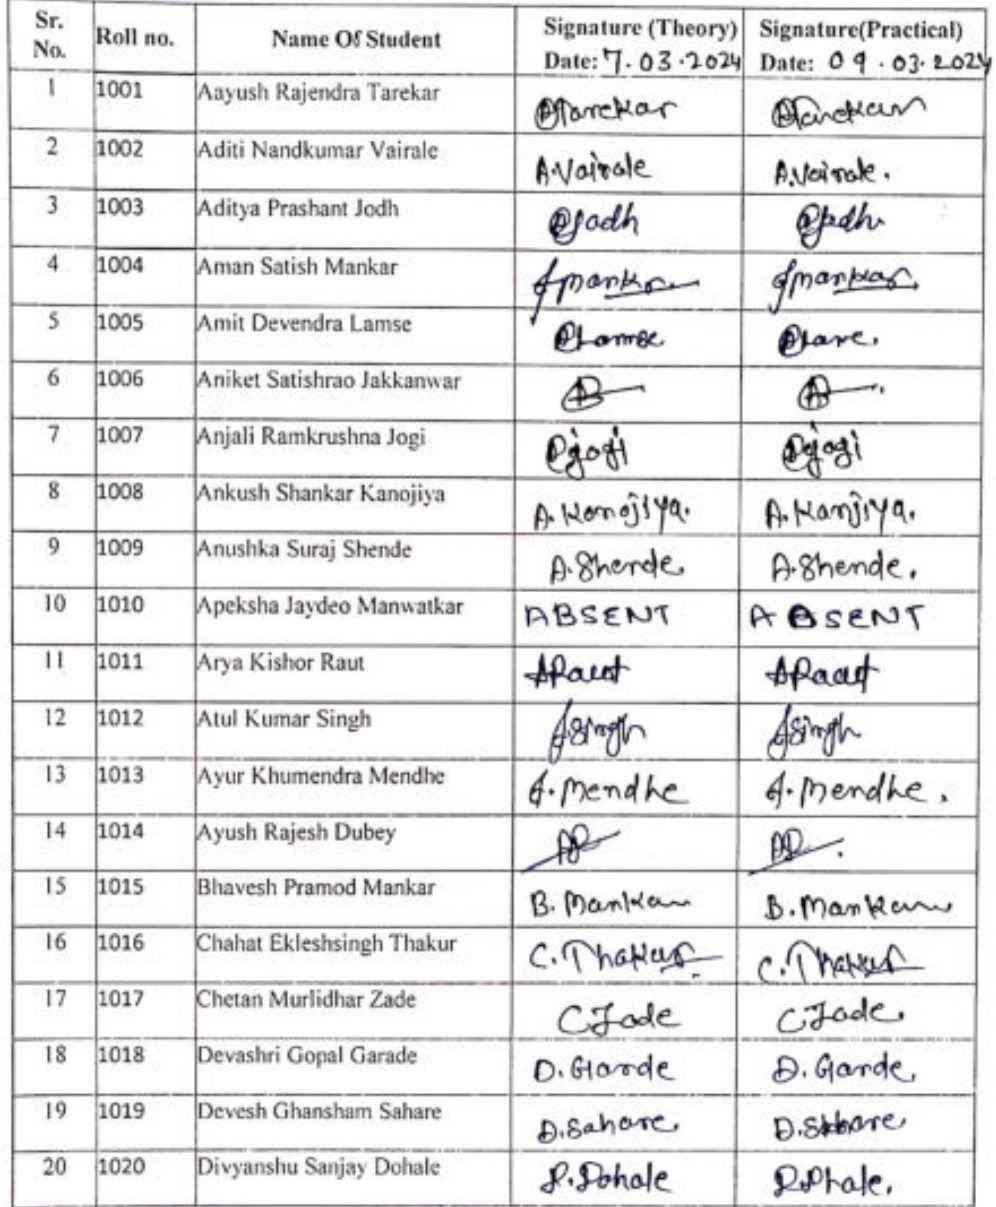 Sr. No. Roll no. Name Of Student Signature (Theory) Date: 7.03.2024 Signature(Practical) Date: 09.03.2024
1 1001 Aayush Rajendra Tarekar
2 1002 Aditi Nandkumar Vairale A.Vairale A.Vairale.
3 1003 Aditya Prashant Jodh
4 1004 Aman Satish Mankar
5 1005 Amit Devendra Lamse
6 1006 Aniket Satishrao Jakkanwar
7 1007 Anjali Ramkrushna Jogi
8 1008 Ankush Shankar Kanojiya A. Kanojiya. A. Kanjiya.
9 1009 Anushka Suraj Shende A.Shende. A.Shende.
10 1010 Apeksha Jaydeo Manwatkar ABSENT ABSENT
11 1011 Arya Kishor Raut ARaut ARaut
12 1012 Atul Kumar Singh
13 1013 Ayur Khumendra Mendhe A. Mendhe A. Mendhe.
14 1014 Ayush Rajesh Dubey
15 1015 Bhavesh Pramod Mankar B. Mankar B. Mankar
16 1016 Chahat Ekleshsingh Thakur C. Thakur C. Thakur
17 1017 Chetan Murlidhar Zade C Zade C Zade.
18 1018 Devashri Gopal Garade D. Garde D. Garde.
19 1019 Devesh Ghansham Sahare D.Sahare. D.Sahare.
20 1020 Divyanshu Sanjay Dohale D.Dohale